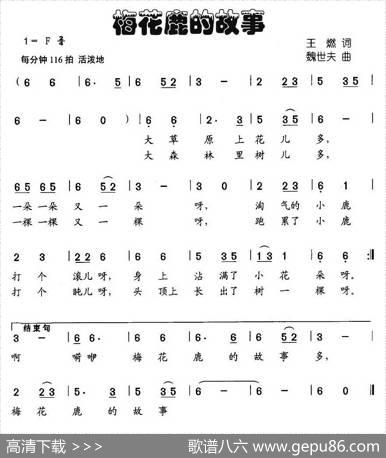 梅花鹿的故事
1= F 2/4
王 燃 词
每分钟116拍 活泼地
魏世夫 曲
(6 6 | 6. 5 | 6 52 | 3 - | 2 23 | 5 35 |
6 - | 6 0) | 6 6 | 2. 3 | 5 35 | 6 - |
大 草 原 上 花 儿 多,
大 森 林 里 树 儿 多,
65 65 | 6 52 | 3 - | 3 0 | 2 23 | 6 1 |
一朵 一朵 又 一 朵 呀, 淘 气的 小 鹿
一棵 一棵 又 一 棵 呀, 跑 累了 小 鹿
2 3 | 22 6 | 6 6 | 5 35 | 13 | 6 :|
打 个 滚儿 呀, 身 上 沾 满了 小 花 朵 呀。
打 个 盹儿 呀, 头 顶 上 长 出了 树 一 棵 呀。
结束句
3 - | 6 6 | 6 6 | 6. 5 | 6 52 | 3 - |
啊 唷 咿 梅 花 鹿 的 故 事 多,
2 23 | 5. 3 | 5 35 | 6 - | 6 - | 6 0 ‖
梅 花 鹿 的 故 事
高清下载 >>>
歌谱八六 www.gepu86.com